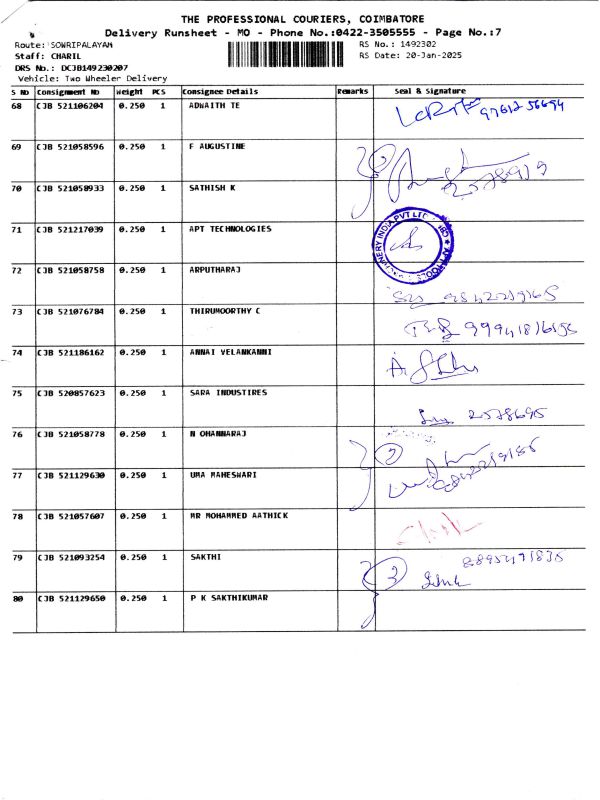 THE PROFESSIONAL COURIERS, COIMBATORE
Delivery Runsheet - MO - Phone No.:0422-3505555 - Page No.:7
Route: SOWRIPALAYAM RS No.: 1492302
Staff: CHARIL RS Date: 20-Jan-2025
DRS No.: DCJB149230207
Vehicle: Two Wheeler Delivery
S No Consignment No Weight PCS Consignee Details Remarks Seal & Signature
68 CJB 521106204 0.250 1 ADWAITH TE
69 CJB 521058596 0.250 1 F AUGUSTINE
70 CJB 521058933 0.250 1 SATHISH K
71 CJB 521217039 0.250 1 APT TECHNOLOGIES
72 CJB 521058758 0.250 1 ARPUTHARAJ
73 CJB 521076784 0.250 1 THIRUMOORTHY C
74 CJB 521186162 0.250 1 ANNAI VELANKANNI
75 CJB 520857623 0.250 1 SARA INDUSTIRES
2578695
76 CJB 521058778 0.250 1 N OHANNARAJ
77 CJB 521129630 0.250 1 UMA MAHESWARI
78 CJB 521057607 0.250 1 MR MOHAMMED AATHICK
79 CJB 521093254 0.250 1 SAKTHI
80 CJB 521129650 0.250 1 P K SAKTHIKUMAR